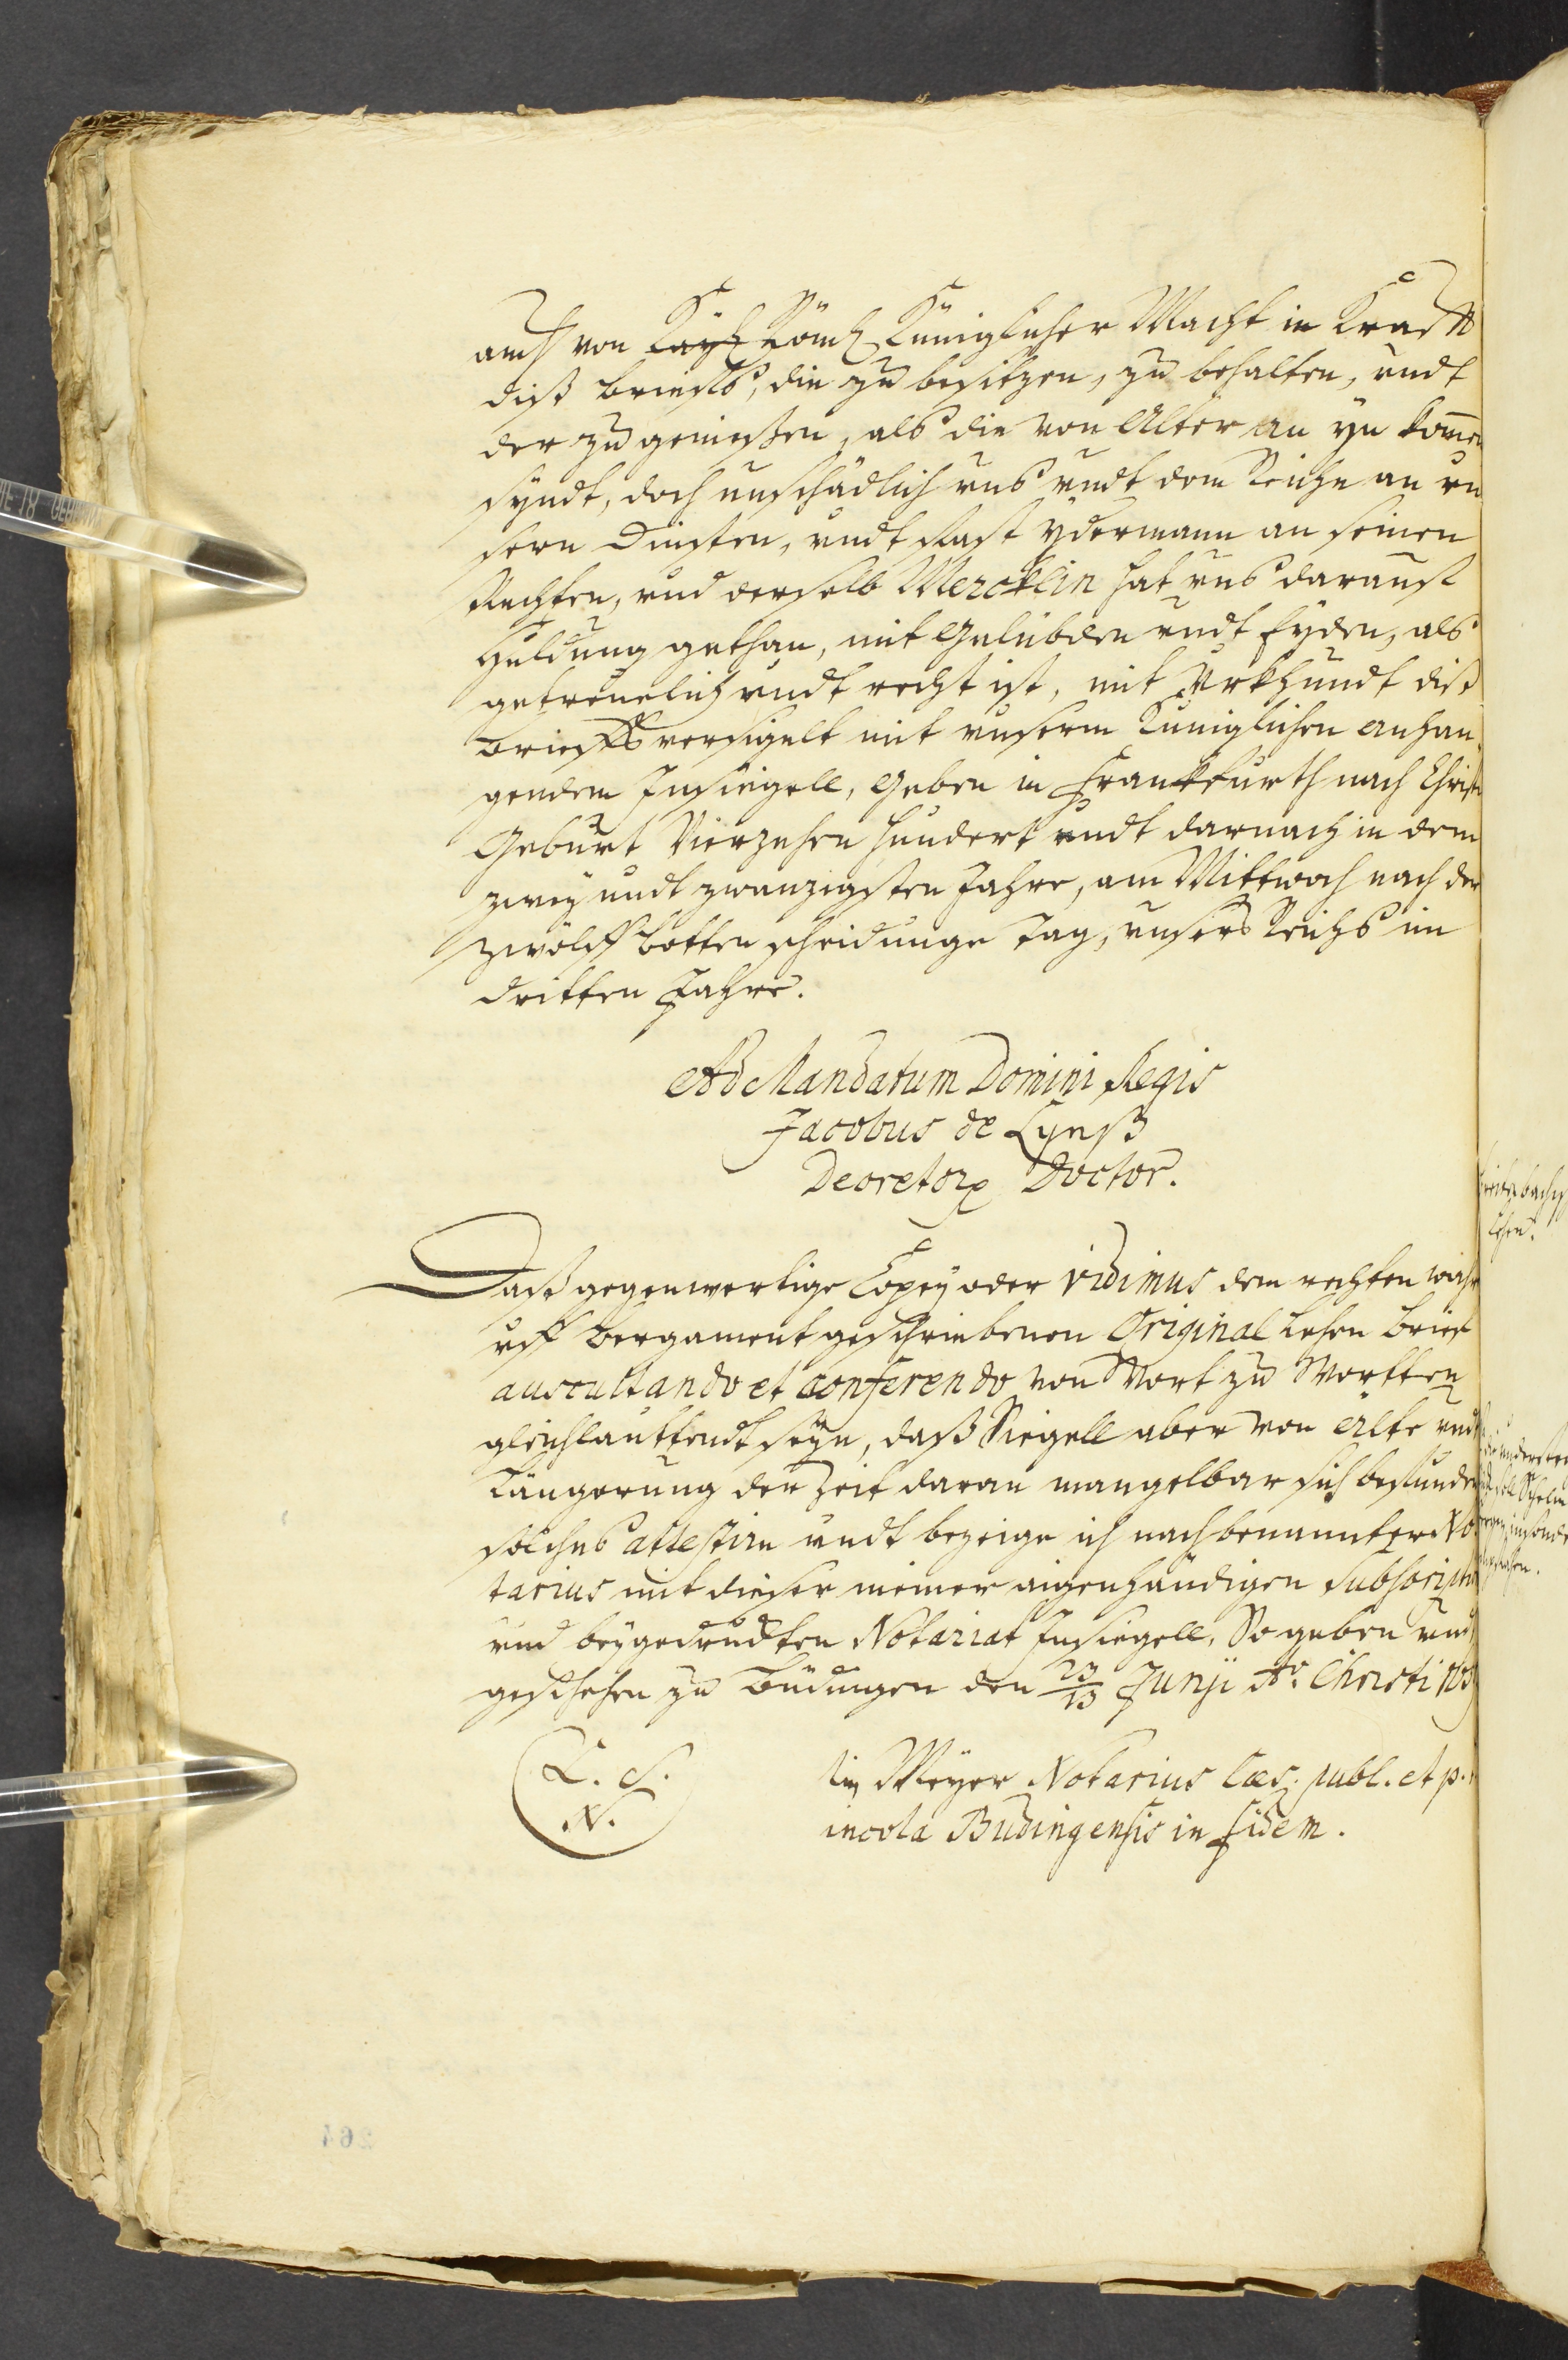 auch von Kayß Römß Küniglicher Macht in Krafft
diß brieffs, die zu besitzen, zu behalten, undt
der zu geniessen, als die von Alter an yn komen
syndt, doch unschädlich uns undt dem Reiche an un
sern Diensten, undt sust ydermann an seinen
Rechten, und derselb Mercklin hat uns darauff
Huldung gethan, mit Gelübden undt Eyden, als
getreuelich undt recht ist, mit Urkhundt diß
brieffs versigelt mit unserm Küniglichen anhan
gendem Insiegell, Geben in Franckfurth nach Christi
Geburt Vierzehen hundert undt darnach in dem
zwey undt zwanzigsten Jahre, am Mittwoch nach der
zwölff botten scheidunge tag, unsers Reichs im
dritten Jahre.
Ad Mandatum Domini Regis
Jacobus de Lynß
Decretorum Doctor.
Daß gegenwertige Copey oder vidimus dem rechten wahr
uff bergament geschriebenen Original Lehen brieff
auscultando et conferendo von Wort zu Wortten
gleichlauttendt seyn, daß Siegell aber von alte undt
Längerung der Zeit daran mangelbar sich befunden
solches attestire undt bezeige ich nachbenannter No
tarius mit dieser meiner aigenhändigen subscription
und beygedruckten Notariat Insiegell, So geben und
geschehen zu Büdingen den 23/13 Junii Ao. Christi
L. S.
N.
Meyer Notarius Cæs. publ. et p.
incola Budingensis in fidem.
Lehen.
264